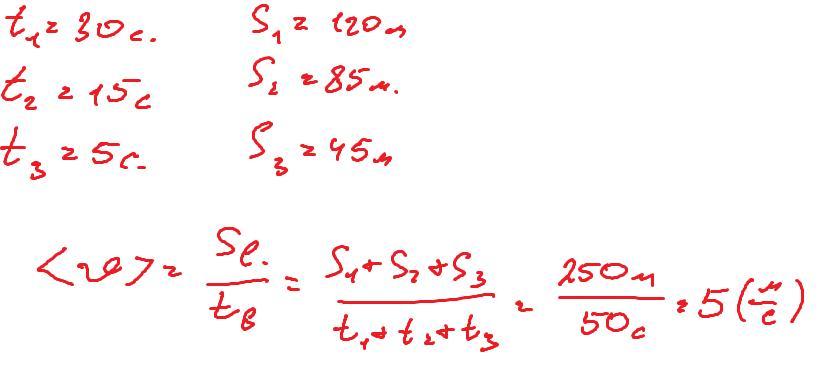 t₁ = 30 с. S₁ = 120 м
t₂ = 15 с S₂ = 85 м.
t₃ = 5 с. S₃ = 45 м
<v> = Sв. / tв = (S₁ + S₂ + S₃) / (t₁ + t₂ + t₃) = 250 м / 50 с = 5 (м/с)